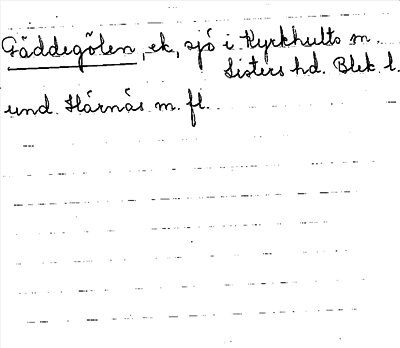 Gäddegölen, ek, sjö i Kyrkhults sn.
Listers hd. Blek. l.
und. Härnäs m. fl.